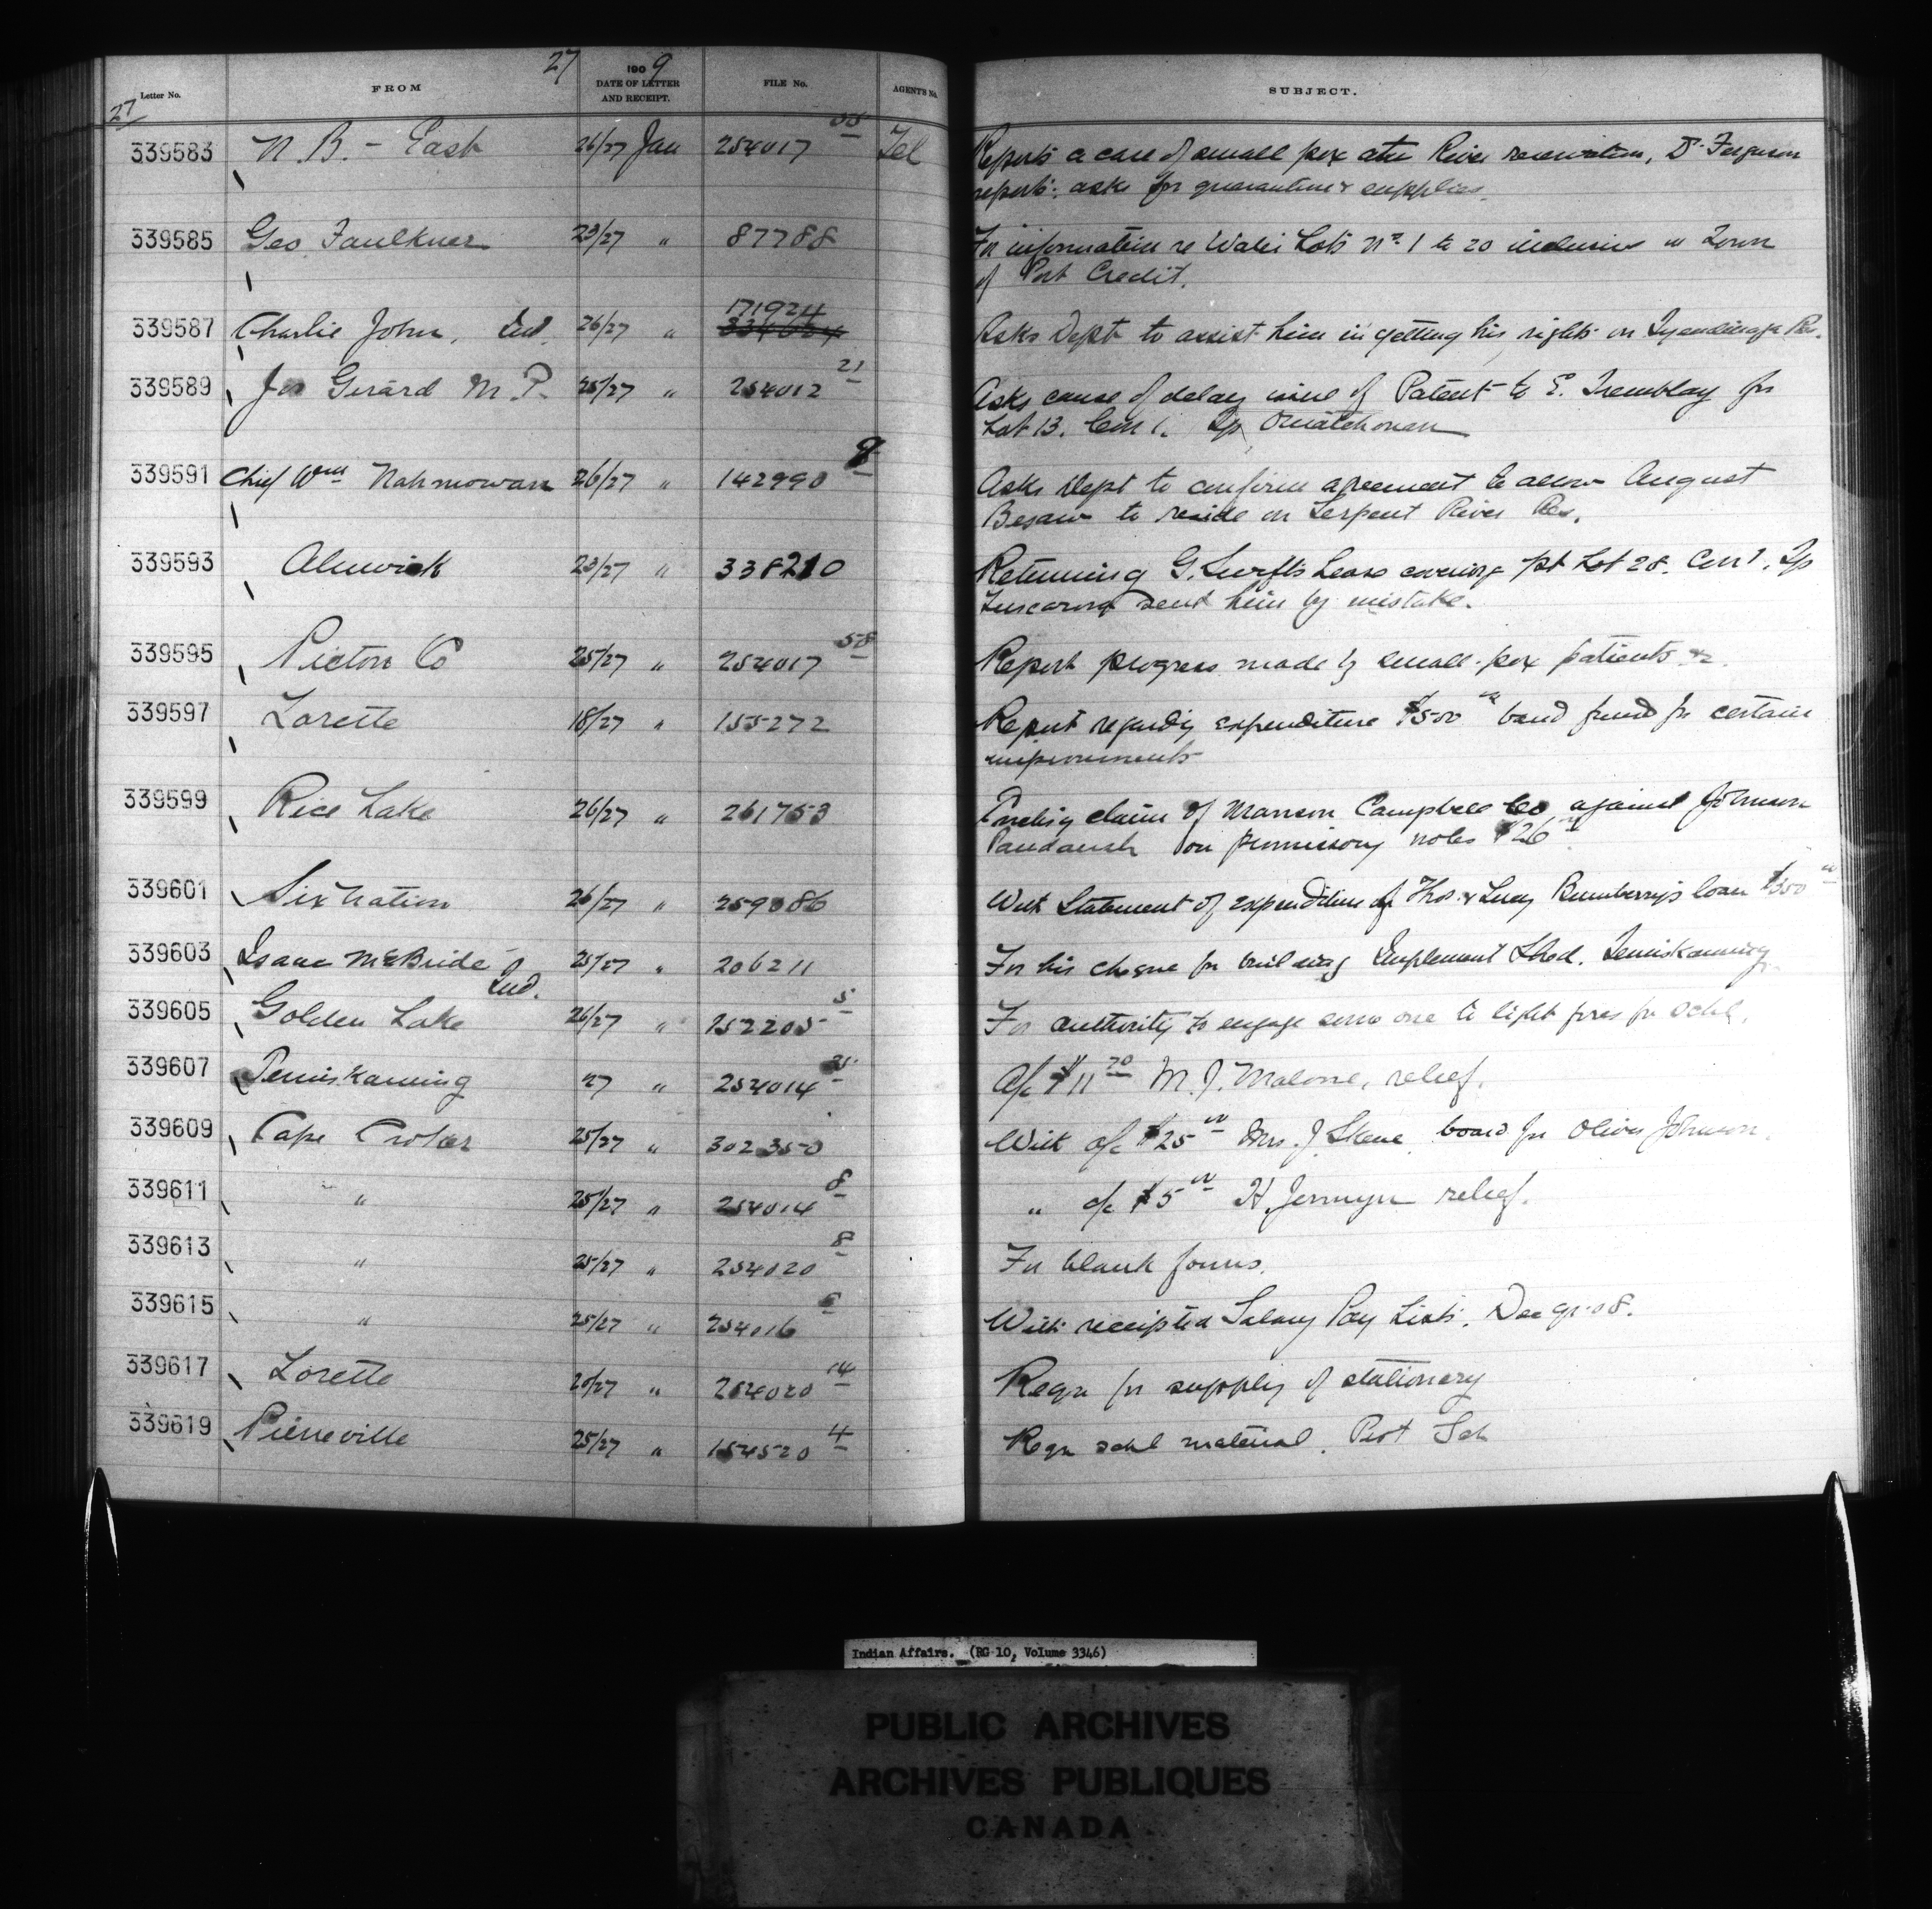 27
1909
Letter No. FROM DATE OF LETTER AND RECEIPT. FILE No. AGENT'S No. SUBJECT.
27
339583 N.B. - East 26/27 Jan 254017 Tel Reports a case of small pox River reservation, Dr Ferguson
reports: asks for quarantine & supplies.
339585 Geo Faulkner 23/27 " 87788 For information re Water Lots Nos. 1 to 20 inclusive in Town
of Port Credit.
171924
339587 Charlie John, Ind. 26/27 " Asks Dept to assist him in getting his rights on Tyendinaga Res.
339589 Jos Girard M.P. 25/27 " 254012 21 Asks cause of delay issue of Patent to E. Tremblay for
Lot 13. Con 1. Tp Ouiatchouan
339591 Chief Wm Nahmowan 26/27 " 142990 9 Asks Dept to confirm agreement to allow August
Besaw to reside on Serpent River Res.
339593 Alnwick 23/27 " 338210 Returning G. Swift's Lease covering pt Lot 28. Con 1. Tp
Tuscarora sent him by mistake.
339595 Pictou Co 25/27 " 254017 58 Report progress made by small-pox patients &c.
339597 Lorette 18/27 " 155272 Report regarding expenditure $500 band fund for certain
improvements
339599 Rice Lake 26/27 " 261753 claim of Manson Campbell Co against Johnson
Paudaush on promissory notes $26
339601 Six Nation 26/27 " 259086 With Statement of expenditure of Thos. & Lucy Bumberry's loan $350
339603 Isaac McBride Ind. 25/27 " 206211 For his cheque for building Implement Shed. Temiskaming
339605 Golden Lake 26/27 " 152205 5 For authority to engage some one to light fires for schl.
339607 Temiskaming 27 " 254014 a/c $11 20 M.J. Malone, relief.
339609 Cape Croker 25/27 " 302350 With a/c $25 00 Mrs. J. Skene board for Oliver Johnson.
339611 " 25/27 " 254014 8 " a/c $5 00 H. Jermyn relief.
339613 " 25/27 " 254020 8 For blank forms.
339615 " 25/27 " 254016 With receipted Salary Pay Lists. Dec qr. 08.
339617 Lorette 20/27 " 254020 14 Reqn for supply of stationery
339619 Pierreville 25/27 " 154520 4 Reqn schl material. Prot Sch
Indian Affairs. (RG 10, Volume 3346)
PUBLIC ARCHIVES
ARCHIVES PUBLIQUES
CANADA